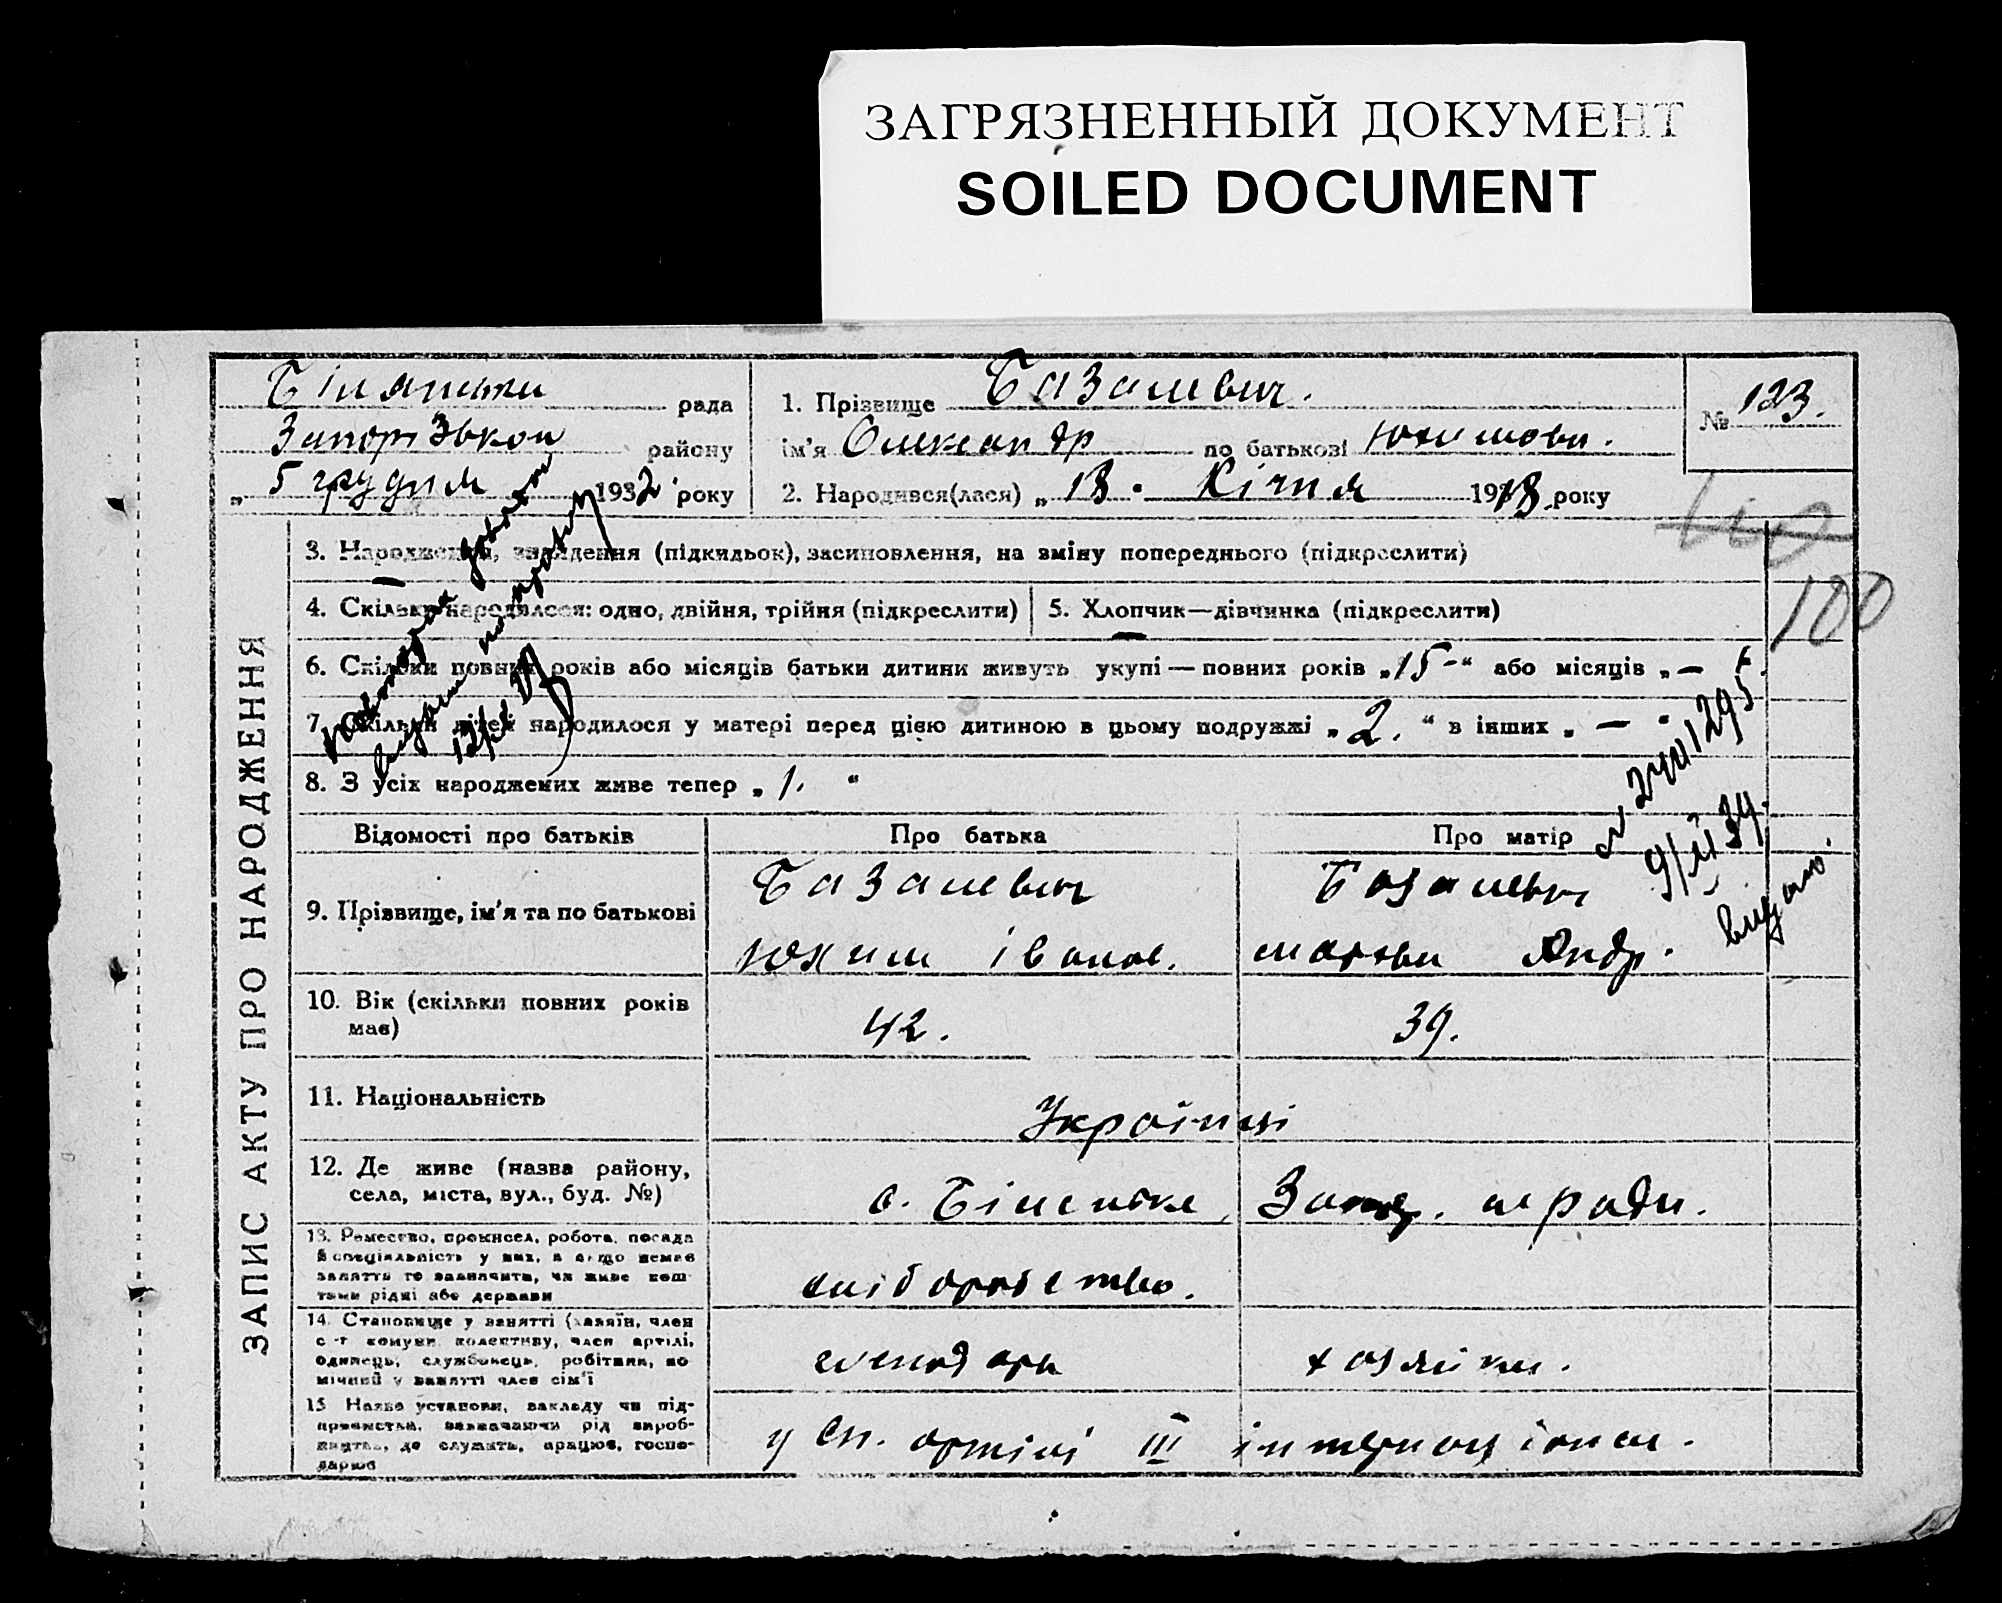 ЗАГРЯЗНЕННЫЙ ДОКУМЕНТ
SOILED DOCUMENT
ЗАПИС АКТУ ПРО НАРОДЖЕННЯ
рада
району
„ 5 грудня 1932 року
1. Прізвище Базалевич.
ім'я Олександр по батькові Юхимови.
2. Народився(лася) „ 13. Січня 1918. року
№ 123.
100
3. Народження, знайдення (підкидьок), засиновлення, на зміну попереднього (підкреслити)
4. Скільки народилося: одно, двійня, трійня (підкреслити)
5. Хлопчик—дівчинка (підкреслити)
6. Скільки повних років або місяців батьки дитини живуть укупі — повних років „15-“ або місяців „ —
7. Скільки дітей народилося у матері перед цією дитиною в цьому подружжі „ 2. “ в інших „ —
8. З усіх народжених живе тепер „ 1. “
повторне
видано
9/II 39.
видано.
Відомості про батьків
Про батька
Про матір
9. Прізвище, ім'я та по батькові
Базалевич
Базалевич
Юхим Іванов.
Андр.
10. Вік (скільки повних років має)
42.
39.
11. Національність
Українці
12. Де живе (назва району, села, міста, вул., буд. №)
с. Біленьке,
13. Ремесство, промисел, робота, посада й спеціяльність у них, а якщо немає заняття то зазначити, чи живе коштами рідні або держави
хліборобство.
14. Становище у занятті (хазяїн, член с.-г. комуни, колективу, член артілі, одинець, службовець, робітник, помічний у занятті член сім'ї
господарь
хозяйка.
15. Назва установи, закладу чи підприємства, зазначаючи рід виробництва, де служить, працює, господарює
у сп. артілі III інтернаціонал.